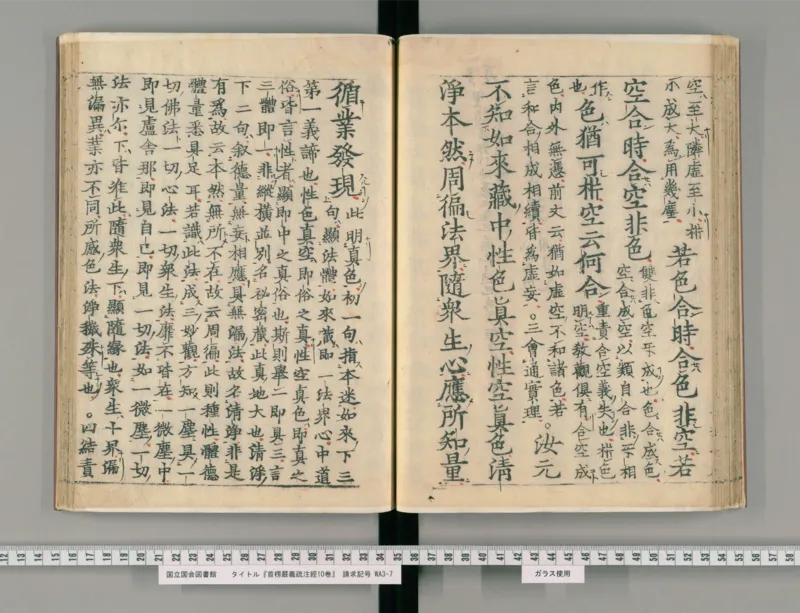 空至大隣虛至小析
不成大為用幾塵
若色合時合色非空若
空合時合空非色
雙非色空不成也色合成色
空合成空以類自合非不相
作
也
色猶可析空云何合
重責合空義失也析色
明空教觀俱有合空成
色內外無憑前文云猶如虛空不和諸色若
言和合相成相續皆為虛妄。三會通實理
。汝元
不知如來藏中性色真空性空真色清
淨本然周徧法界隨衆生心應所知量
循業發現
此明真色初一句指本迷如來下三
句顯法體如來藏即一法界心中道
第一義諦也性色真空即俗之真性空真色即真之
俗皆言性者顯即中之真俗也斯則舉二即具三言
三體即一非縱橫並別名秘密藏此真地大也清淨
下二句敘德量無妄相應具無漏法故名清淨非是
有為故云本然無所不在故云周徧此則種性體德
體量悉具足耳若識此法成三妙觀方知一塵具一
切佛法一切心法一切衆生法靡不皆在一微塵中
即見盧舍那即見自己即見一切法如一微塵一切
法亦尒下皆准此隨衆生下顯隨緣也衆生十界漏
無漏異業亦不同所感色法淨穢殊等也。四結責
国立国会図書館 タイトル『首楞厳義疏注経10巻』 請求記号 WA3-7
ガラス使用